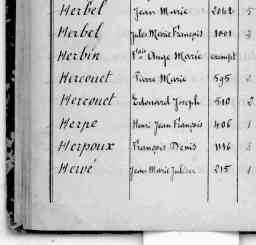 Herbel Jean Marie 2042 5
Herbel Jules Marie François 1001
Herbin Ange Marie exempt
Hercouet Pierre Marie 595 2
Hercouet Edouard Joseph 510 2
Herpe Henri Jean François 406 1
Herpoux François Denis
Hervé Jean Marie 215 1